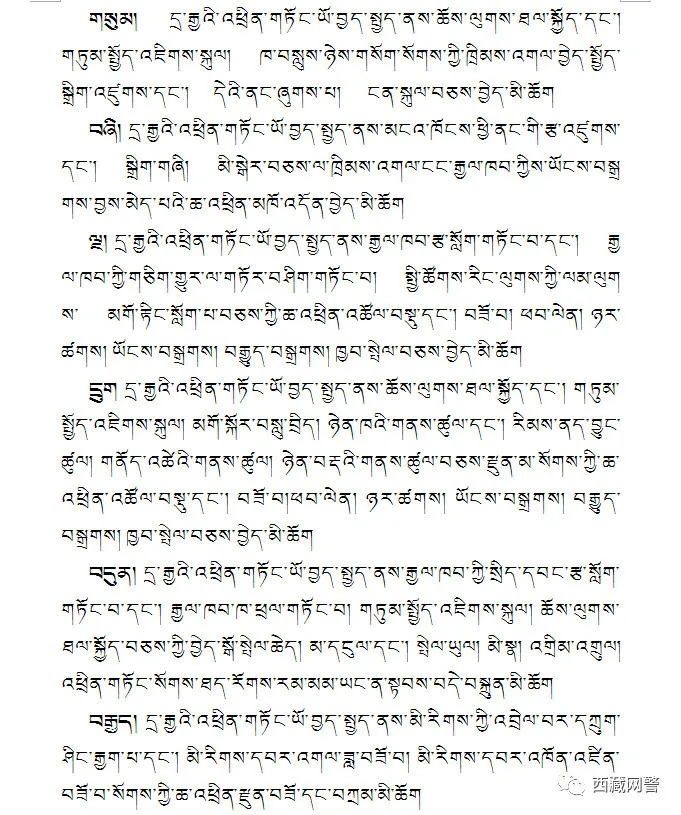 གསུམ། དྲ་རྒྱའི་འཕྲིན་གཏོང་ཡོ་བྱད་སྤྱད་ནས་ཆོས་ལུགས་ཐལ་སྐྱོད་དང་།
གཏུམ་སྤྱོད་འཇིགས་སྐུལ། ཁ་བསླུས་ཉེས་གསོག་སོགས་ཀྱི་ཁྲིམས་འགལ་བྱེད་སྤྱོད་
སྒྲིག་འཛུགས་དང་། དེའི་ནང་ཞུགས་པ། ངན་སྐུལ་བཅས་བྱེད་མི་ཆོག
བཞི། དྲ་རྒྱའི་འཕྲིན་གཏོང་ཡོ་བྱད་སྤྱད་ནས་མངའ་ཁོངས་ཕྱི་ནང་གི་རྩ་འཛུགས་
དང་། སྒྲིག་གཞི། མི་སྒེར་བཅས་ལ་ཁྲིམས་འགལ་ངང་རྒྱལ་ཁབ་ཀྱིས་ཡོངས་བསྒྲ
གས་བྱས་མེད་པའི་ཆ་འཕྲིན་མཁོ་འདོན་བྱེད་མི་ཆོག
ལྔ། དྲ་རྒྱའི་འཕྲིན་གཏོང་ཡོ་བྱད་སྤྱད་ནས་རྒྱལ་ཁབ་རྩ་སློག་གཏོང་བ་དང་། རྒྱ
ལ་ཁབ་ཀྱི་གཅིག་གྱུར་ལ་གཏོར་བཤིག་གཏོང་བ། སྤྱི་ཚོགས་རིང་ལུགས་ཀྱི་ལམ་ལུག
ས་ མགོ་རྟིང་སློག་པ་བཅས་ཀྱི་ཆ་འཕྲིན་འཚོལ་བསྡུ་དང་། བཟོ་བ། ཕབ་ལེན། ཉར་
ཚགས། ཡོངས་བསྒྲགས། བརྒྱུད་བསྒྲགས། ཁྱབ་སྤེལ་བཅས་བྱེད་མི་ཆོག
དྲུག དྲ་རྒྱའི་འཕྲིན་གཏོང་ཡོ་བྱད་སྤྱད་ནས་ཆོས་ལུགས་ཐལ་སྐྱོད་དང་། གཏུམ་
སྤྱོད་འཇིགས་སྐུལ། མགོ་སྐོར་བསླུ་བྲིད། ཉེན་ཁའི་གནས་ཚུལ་དང་། རིམས་ནད་བྱུང་
ཚུལ། གནོད་འཚེའི་གནས་ཚུལ། ཉེན་བརྡའི་གནས་ཚུལ་བཅས་རྫུན་མ་སོགས་ཀྱི་ཆ་
འཕྲིན་འཚོལ་བསྡུ་དང་། བཟོ་བ།ཕབ་ལེན། ཉར་ཚགས། ཡོངས་བསྒྲགས། བརྒྱུད་
བསྒྲགས། ཁྱབ་སྤེལ་བཅས་བྱེད་མི་ཆོག
བདུན། དྲ་རྒྱའི་འཕྲིན་གཏོང་ཡོ་བྱད་སྤྱད་ནས་རྒྱལ་ཁབ་ཀྱི་སྲིད་དབང་རྩ་སློག་
གཏོང་བ་དང་། རྒྱལ་ཁབ་ཁ་ཕྲལ་གཏོང་བ། གཏུམ་སྤྱོད་འཇིགས་སྐུལ། ཆོས་ལུགས་
ཐལ་སྐྱོད་བཅས་ཀྱི་བྱེད་སྒོ་སྤེལ་ཆེད། མ་དངུལ་དང་། སྤེལ་ཡུལ། མི་སྣ། འགྲིམ་འགྲུལ།
འཕྲིན་གཏོང་སོགས་ཐད་རོགས་རམ་མམ་ཡང་ན་སྟབས་བདེ་བསྐྲུན་མི་ཆོག
བརྒྱད། དྲ་རྒྱའི་འཕྲིན་གཏོང་ཡོ་བྱད་སྤྱད་ནས་མི་རིགས་ཀྱི་འབྲེལ་བར་དཀྲུག་
ཤིང་རྒྱག་པ་དང་། མི་རིགས་དབར་འགལ་ཟླ་བཟོ་བ། མི་རིགས་དབར་འཁོན་འཛིན་
བཟོ་བ་སོགས་ཀྱི་ཆ་འཕྲིན་རྫུན་བཟོ་དང་བཀྲམ་མི་ཆོག
西藏网警